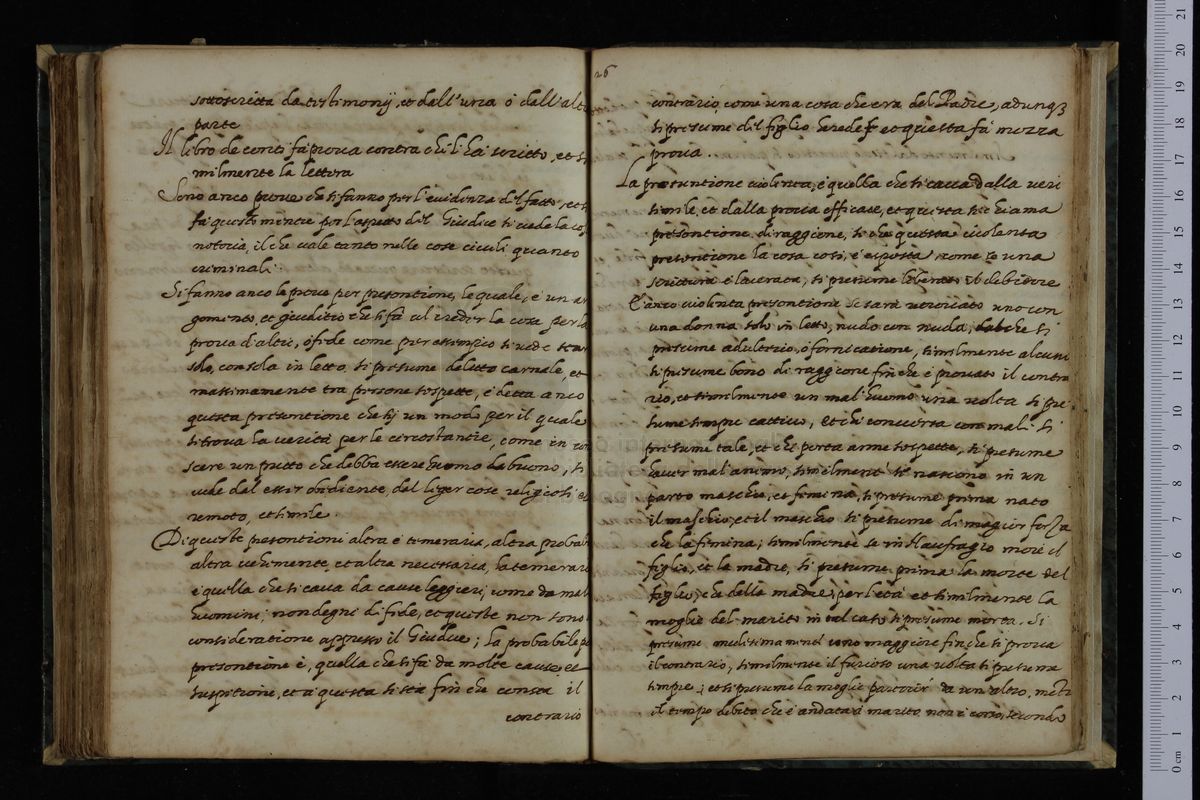 sottoscritta da testimonij, et dall'una ò dall'altra
parte
Il libro de conti fà prova contra chi li hà scritto, et si
milmente la lettera
Sono anco prove che si fanno per l'evidenza del fatto, et si
fà questo mentre per l'aspetto del Giudice si vede la cosa
notoria, il che vale tanto nelle cose civili quanto
criminali.
Si fanno anco le prove per presontione, le quale, è un ar
gomento, et giuditio che si fà al creder la cosa per la
prova d'altri, ò fide come per essempio si vede
solo, con sola in letto, si presume delitto carnale, et
massimamente tra persone sospette, è detta anco
questa presontione che sij un modo per il quale
si trova la verità per le circostantie, come in
scere un putto che debba essere huomo da buono, si
vede dal esser obediente, dal leger cose religiosi et
remoto, et simile.
Di queste presontioni altra è temeraria, altra probabile
altra vehemente, et altra necessaria, la temeraria
è quella che si cava da cause leggieri, come da mal
huomini, non degni di fide, et queste non sono
consideratione appresso il Giudice; la probabile
presontione è, quella che si fà da molte cause, et
suspitione, et à questa si stà fin che consta il
contrario
26
contrario, come una cosa che era del Padre, adunq3
si presume del figlio herede et questa fà mezza
prova.
La presuntione violenta, è quella che si cava dalla veri
simile, et dalla prova efficace, et questa si chiama
presontione di raggione, si che questa violenta
presontione la cosa così, è esposta, come se una
scrittura è lacerata, si presume liberato il debitore
È anco violenta presontione se sarà retrovato uno con
una donna solo in letto, nudo con nuda, che si
presume adulterio, ò fornicatione, similmente alcuni
si presume bono di raggione fin che è provato il contra
rio, et similmente un mal'huomo una volta si pre
sume sempre cattivo, et chi conversa con mali si
presume tale, et chi porta arme sospette, si presume
haver mal animo, similment' se nascono in un
parto maschio, et femina, si presume prima nato
il maschio, et il maschio si presume di magior forza
che la femina; similmente se in Naufragio more il
figlio, et la madre, si presume prima la morte del
figlio, che della madre, per l'età et similmente la
moglie del marito in tal caso si presume morta. Si
presume medesimament' uno maggiore fin che si prova
il contrario, similmente il furioso una volta si presume
sempre; et si presume la moglie partorir' da un altro, mentre
il tempo debito che è andata à marito non è corso, secondo